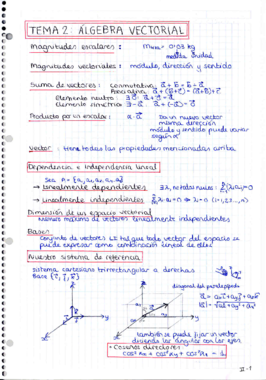 TEMA 2: ÁLGEBRA VECTORIAL
Magnitudes escalares: m = 0.03 kg
medida unidad
Magnitudes vectoriales: módulo, dirección y sentido
Suma de vectores: conmutativa a⃗ + b⃗ = b⃗ + a⃗
Asociativa a⃗ + (b⃗ + c⃗) = (a⃗ + b⃗) + c⃗
Elemento neutro ∃ 0⃗ : a⃗ + 0⃗ = a⃗
Elemento simétrico ∃ -a⃗ : a⃗ + (-a⃗) = 0⃗
Producto por un escalar: α·a⃗ Da un nuevo vector
misma dirección
módulo y sentido puede variar
según α
Vector: tiene todas las propiedades mencionadas arriba
Dependencia e independencia lineal
Sea
→ linealmente dependientes ∃ λi no todos nulos: Σ λi ai = 0
→ linealmente independientes Σ λi ai = 0 ⇔ λi = 0 (i=1,2,...,n)
Dimensión de un espacio vectorial
Número máximo de vectores linealmente independientes
Base:
Conjunto de vectores LI tal que todo vector del espacio se
puede expresar como combinación lineal de ellos
Nuestro sistema de referencia
sistema cartesiano trirrectangular a derechas
Base {i⃗, j⃗, k⃗}
diagonal del paralelepípedo
a⃗ = axi⃗ + ayj⃗ + azk⃗
|a⃗| = √ax² + ay² + az²
también se puede fijar un vector
diciendo los ángulos con los ejes
• Cosenos directores
cos²αx + cos²αy + cos²αz = 1
II-1